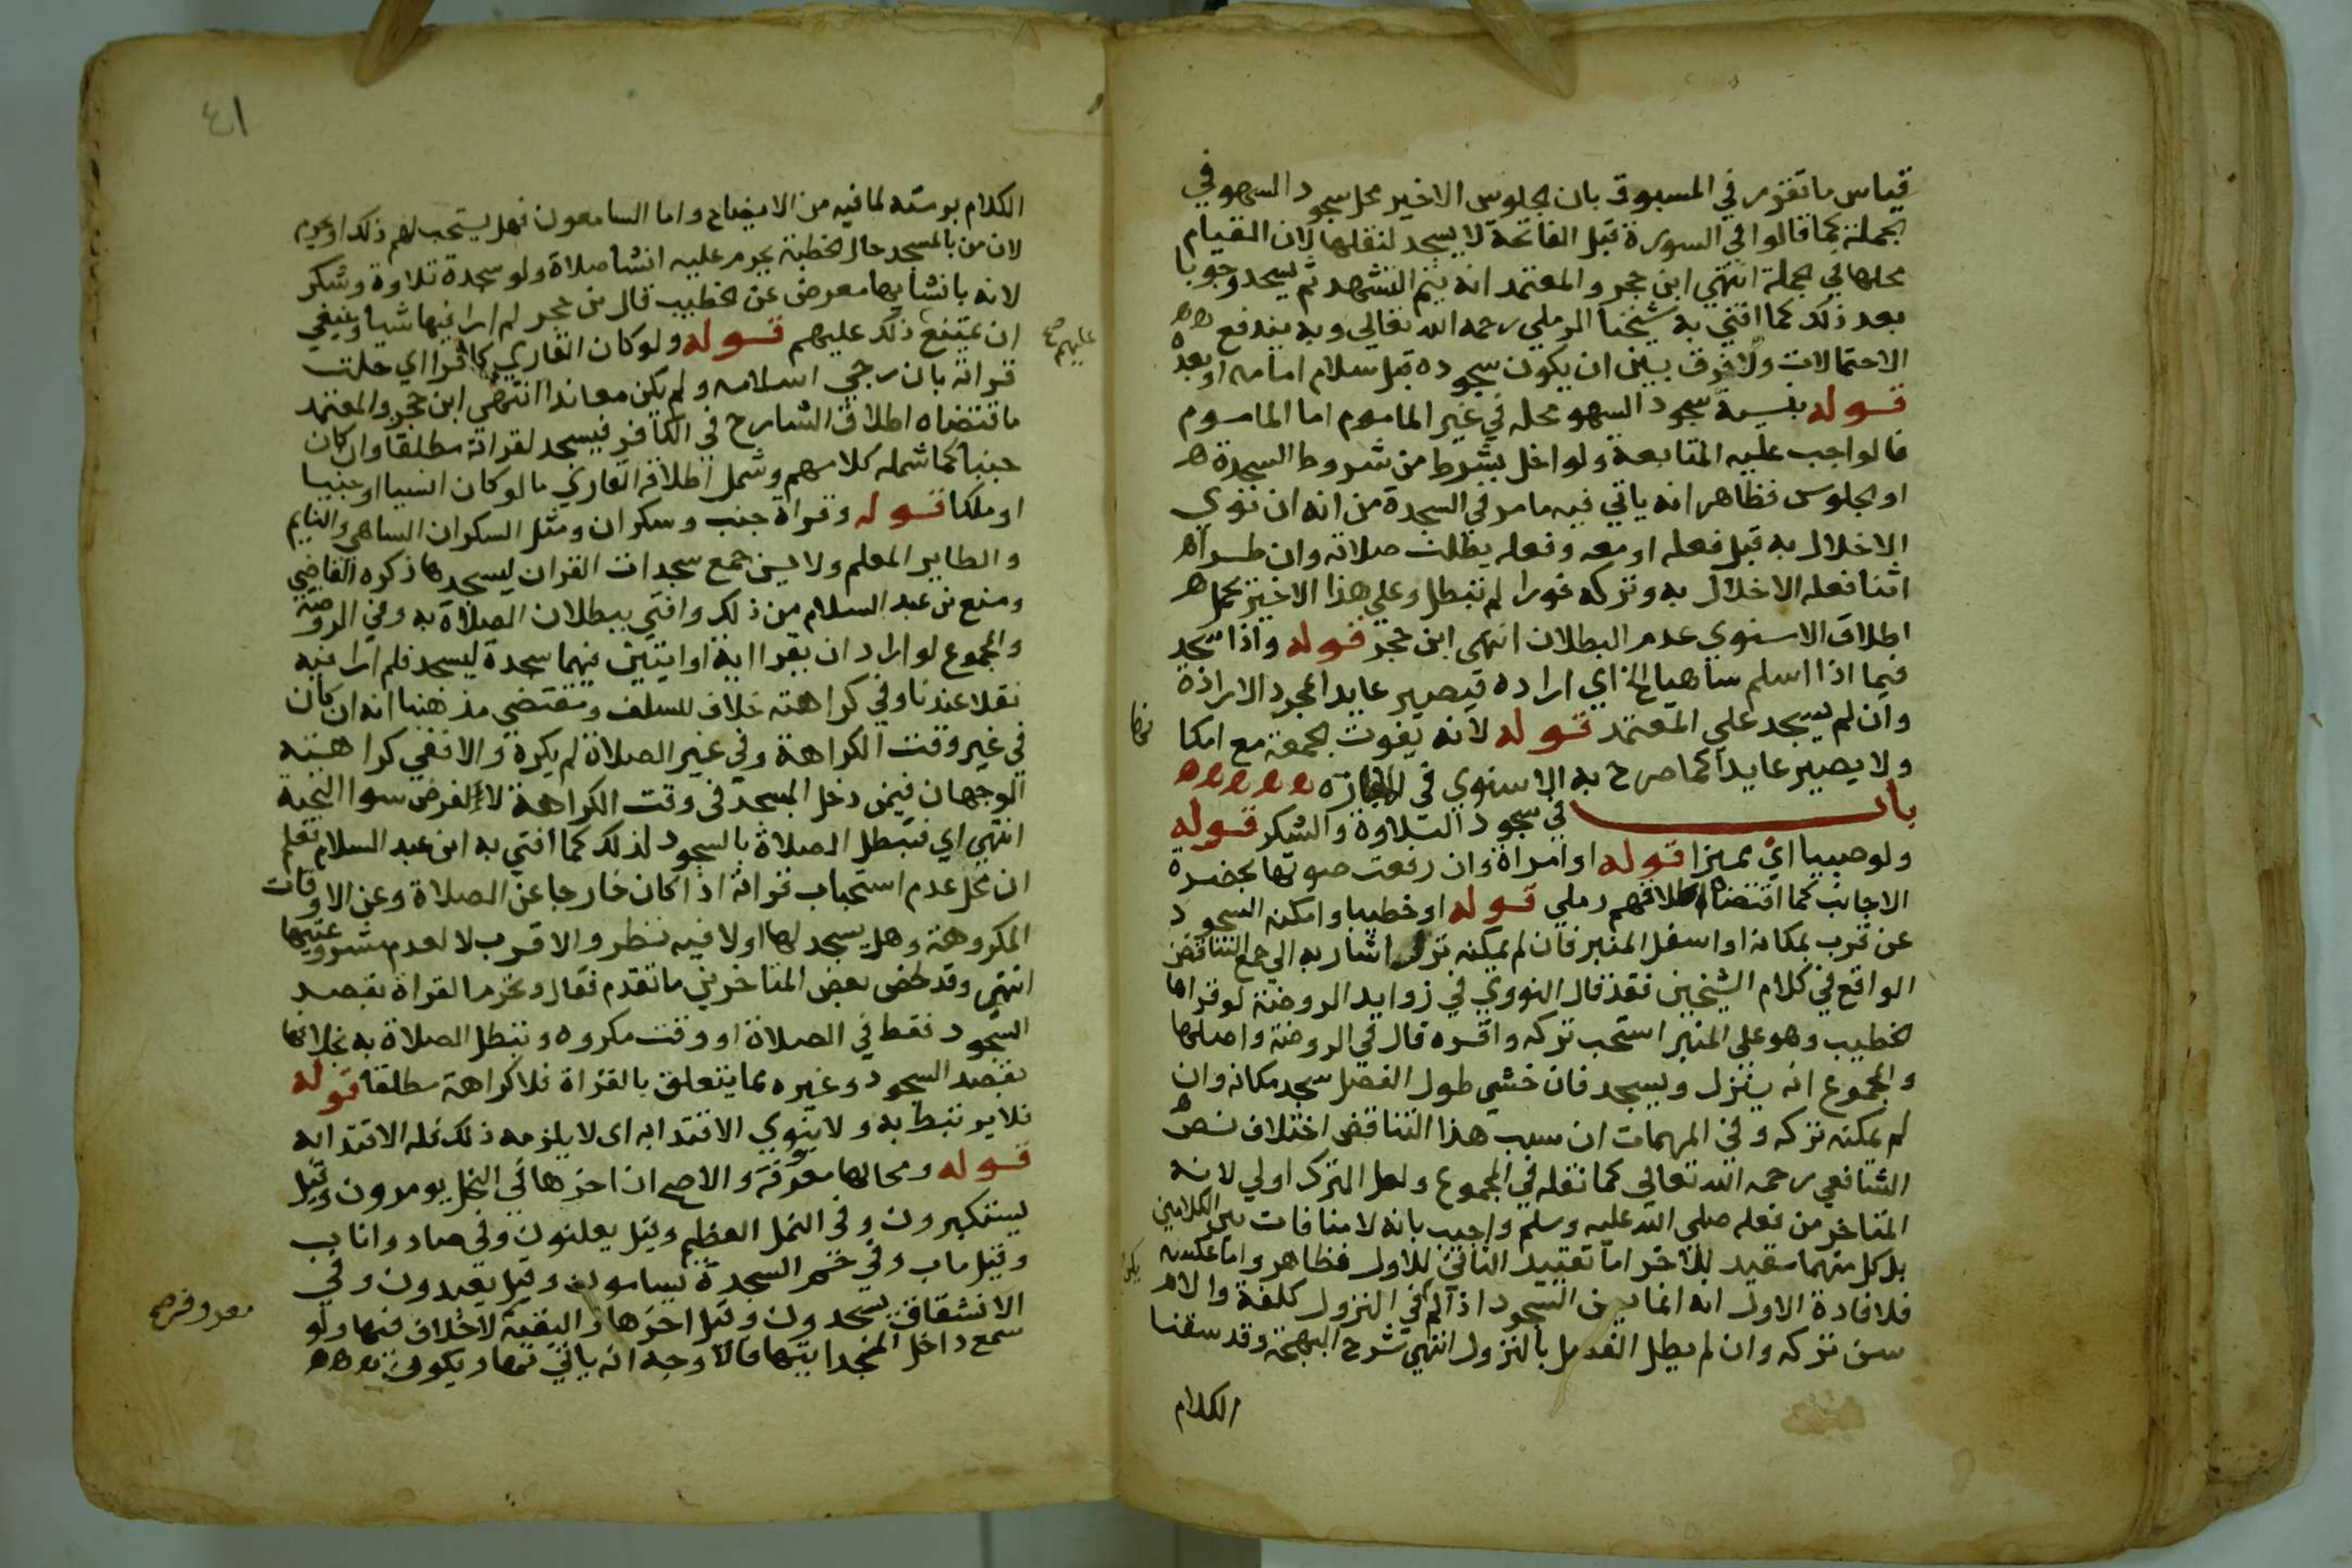 قياس ما تقرر في المسبوق بان الجلوس الاخير محل سجود السهو في
الجملة كما قالوا في السورة قبل الفاتحة لا يسجد لنقلها لان القيام
محلها في الجملة انتهي ابن حجر والمعتمد انه يتم التشهد ثم يسجد وجوبا
بعد ذلك كما افتي به شيخنا الرملي رحمه الله تعالي وبه يندفع
الاحتمالات ولا فرق بين ان يكون سجوده قبل سلام امامه او بعده
قوله بنية سجود السهو محله في غير الماموم اما الماموم
فالواجب عليه المتابعة ولو اخل بشرط من شروط السجدة
او الجلوس فظاهر انه ياتي فيه ما مر في السجدة من انه ان نوي
الاخلال به قبل فعله او معه وفعله بطلت صلاته وان طرا
اثنا فعله الاخلال به وتركه فورا لم تبطل وعلي هذا الاخير يحمل
اطلاق الاسنوي عدم البطلان انتهي ابن حجر قوله واذا سجد
فيما اذا سلم ساهيا الخ اي اراده فيصير عايدا بمجرد الارادة
وان لم يسجد علي المعتمد قوله لانه يفوت الجمعة مع امكا
نها
ولا يصير عايدا كما صرح به الاسنوي في الغازه
باب في سجود التلاوة والشكر قوله
ولو صبيا اي مميزا قوله او امراة وان رفعت صوتها بحضرة
الاجانب كما اقتضاه اطلاقهم رملي قوله او خطيبا وامكنه السجود
عن قرب بمكانه او اسفل المنبر فان لم يمكنه ترك اشار به الي جمع التناقض
الواقع في كلام الشيخين فقد قال النووي في زوايد الروضة لو قراها
الخطيب وهو علي المنبر استحب تركه واقره قال في الروضة واصلها
والمجموع انه ينزل ويسجد فان خشي طول الفصل سجد مكانه وان
لم يمكنه تركه وفي المهمات ان سبب هذا التناقض اختلاف نص
الشافعي رحمه الله تعالي كما نقله في المجموع ولعل الترك اولي لانه
المتاخر من فعله صلي الله عليه وسلم واجيب بانه لا منافات بين الكلامين
بل كل منهما مقيد للاخر اما تقييد الثاني للاول فظاهر واما عكسه
فلافادة الاول انه انما يسن السجود اذا لم يكن في النزول كلفة والا
سن تركه وان لم يطل الفصل بالنزول انتهي شرح البهجة وقد سقنا
الكلام
٤١
الكلام برمته لما فيه من الايضاح واما السامعون فهل يستحب لهم ذلك او يحرم
لان من بالمسجد حال الخطبة يحرم عليه انشا صلاة ولو سجدة تلاوة وشكر
لانه بانشايها معرض عن الخطيب قال بن حجر لم ار فيها شيا وينبغي
ان يمتنع ذلك عليهم قوله ولو كان القاري كافرا اي حلت
عليهم صح
قراته بان رجي اسلامه ولم يكن معاندا انتهي ابن حجر والمعتمد
ما اقتضاه اطلاق الشارح في الكافر فيسجد لقراته مطلقا وان كان
جنبا كما شمله كلامهم وشمل اطلاقه القاري ما لو كان انسيا او جنيا
او ملكا قوله وقراة جنب وسكران ومثل السكران الساهي والنايم
والطاير المعلم ولا يسن جمع سجدات القران ليسجدها ذكره القاضي
ومنع بن عبد السلام من ذلك وافتي ببطلان الصلاة به وفي الروضة
والمجموع لو اراد ان يقرا اية او ايتين فيهما سجدة ليسجد فلم ار فيه
نقلا عندنا وفي كراهته خلاف للسلف ومقتضي مذهبنا انه ان كان
في غير وقت الكراهة وفي غير الصلاة لم يكره والا ففي كراهته
الوجهان فيمن دخل المسجد في وقت الكراهة لا لغرض سوا التحية
انتهي اي فتبطل الصلاة بالسجود لذلك كما افتي به ابن عبد السلام نعلم
ان محل عدم استحباب قراته اذا كان خارجا عن الصلاة وعن الاوقات
المكروهة وهل يسجد لها او لا فيه نظر والاقرب لا لعدم مشروعيتها
انتهي وقد لخص بعض المتاخرين ما تقدم فقال وتحرم القراة بقصد
السجود فقط في الصلاة او وقت مكروه وتبطل الصلاة به بخلافها
بقصد السجود وغيره مما يتعلق بالقراة فلا كراهة مطلقا قوله
فلا يرتبط به ولا ينوي الاقتدا به اي لا يلزمه ذلك فله الاقتدا به
قوله ومحالها معروفة والاصح ان اخرها في النحل يومرون وقيل
معروفة صح
يستكبرون وفي النمل العظيم وقيل يعلنون وفي صاد واناب
وقيل ماب وفي حم السجدة يسامون وقيل يعبدون وفي
الانشقاق يسجدون وقيل اخرها والبقية لا خلاف فيها ولو
سمع داخل المسجد ايتها فالاوجه انه ياتي بها ويكون